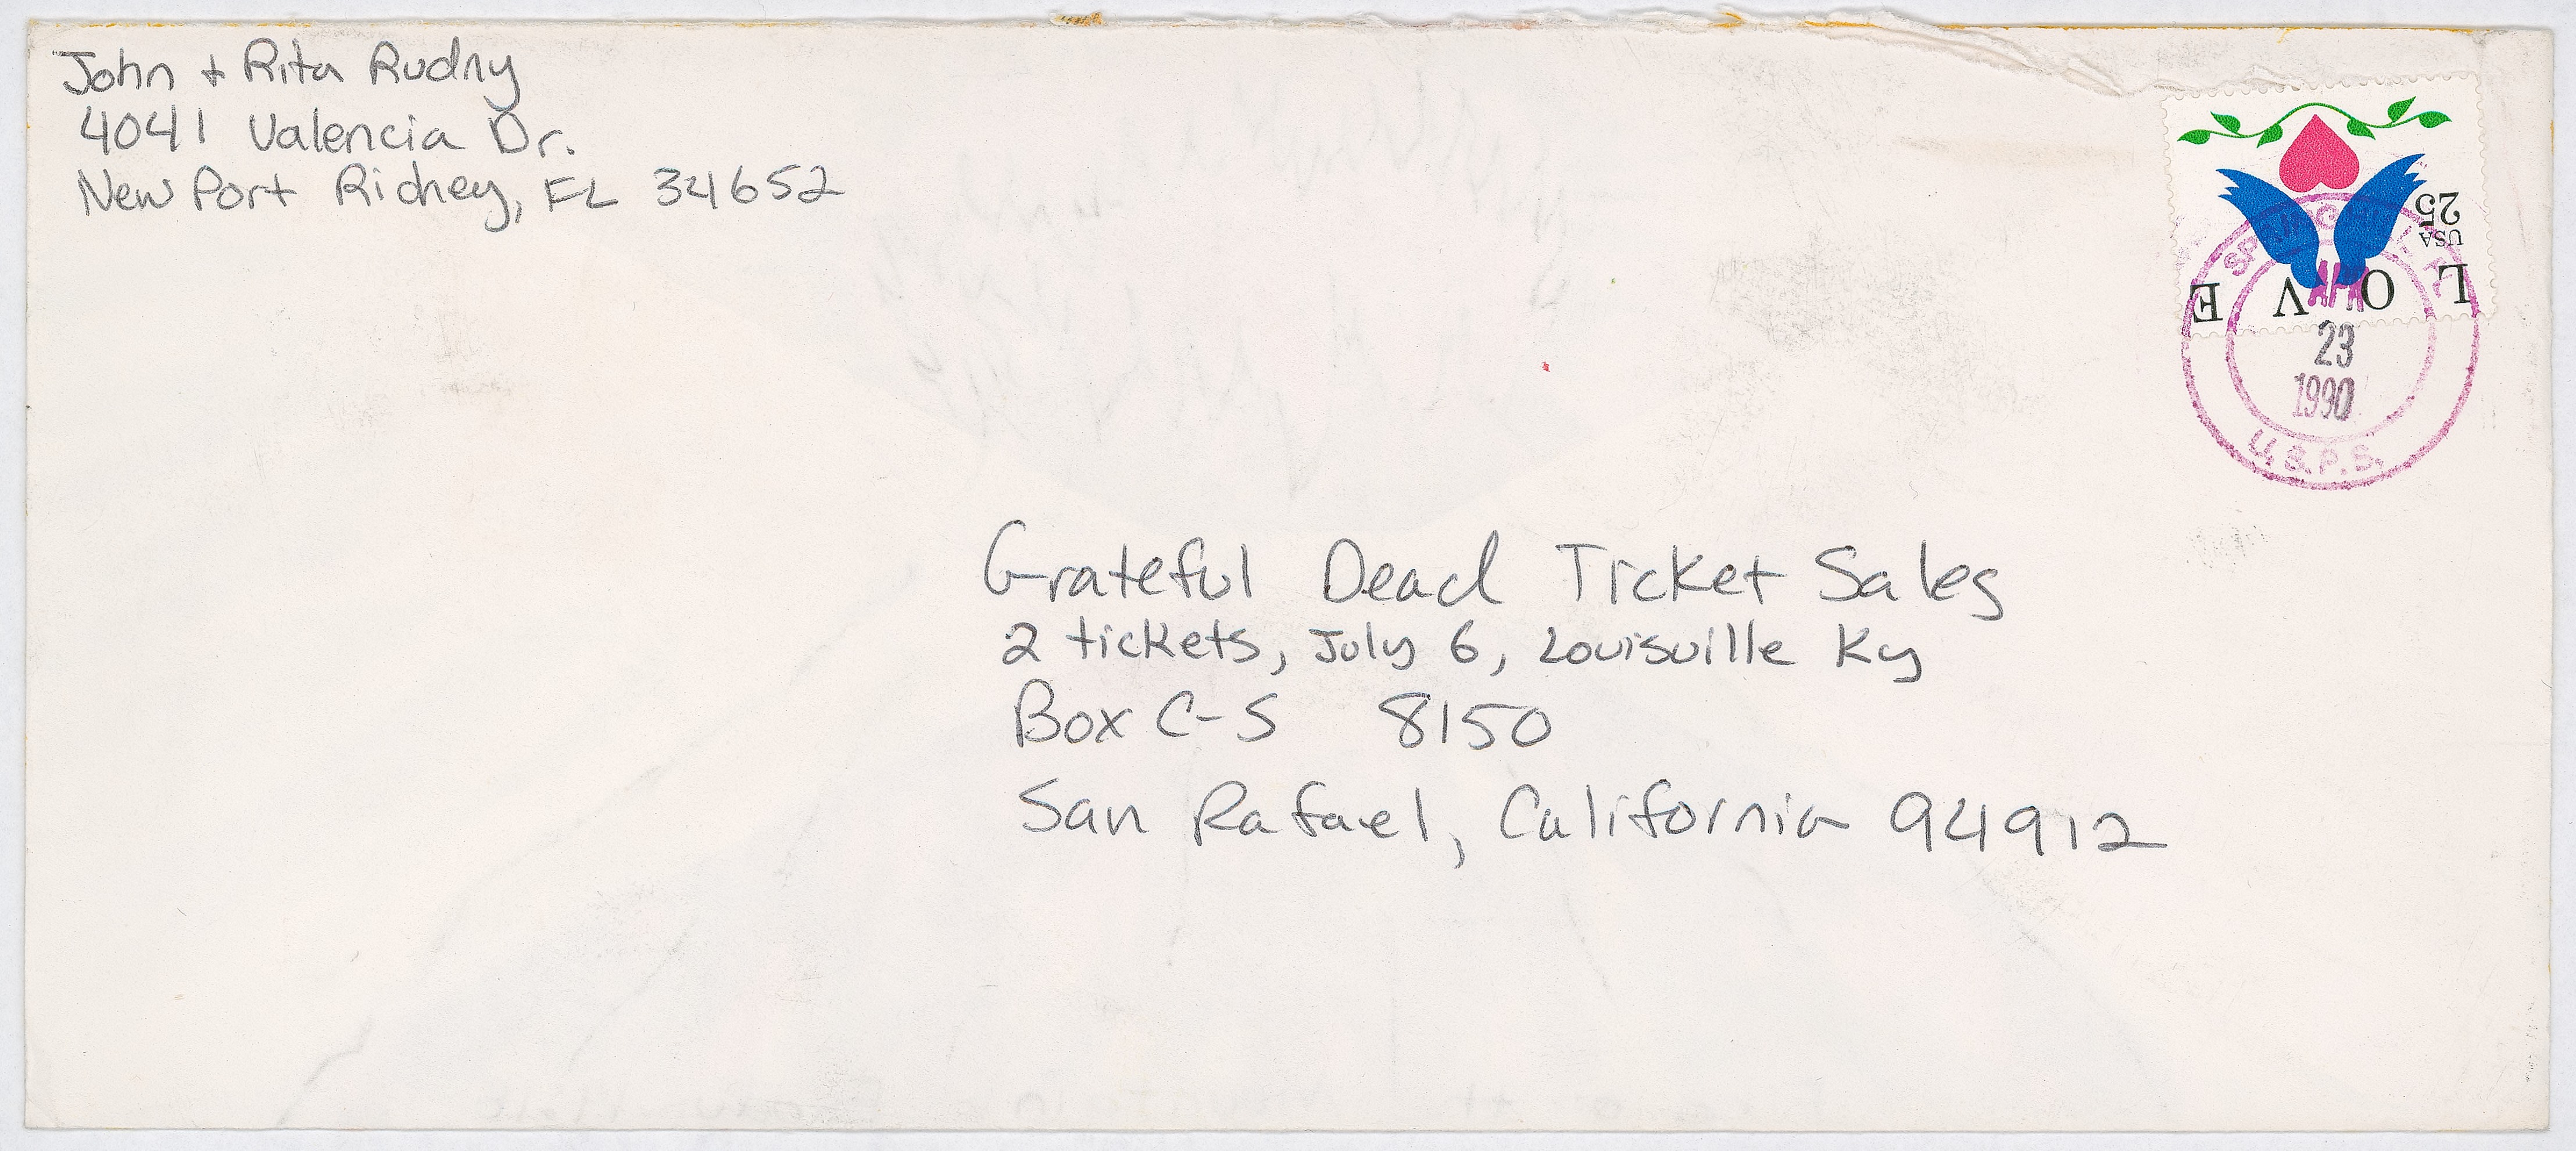 John + Rita Rudny
4041 Valencia Dr.
New Port Richey, FL 34652
25
USA
LOVE
23
1990
U.S.P.S.
Grateful Dead Ticket Sales
2 tickets, July 6, Louisville Ky
Box C-S 8150
San Rafael, California 94912